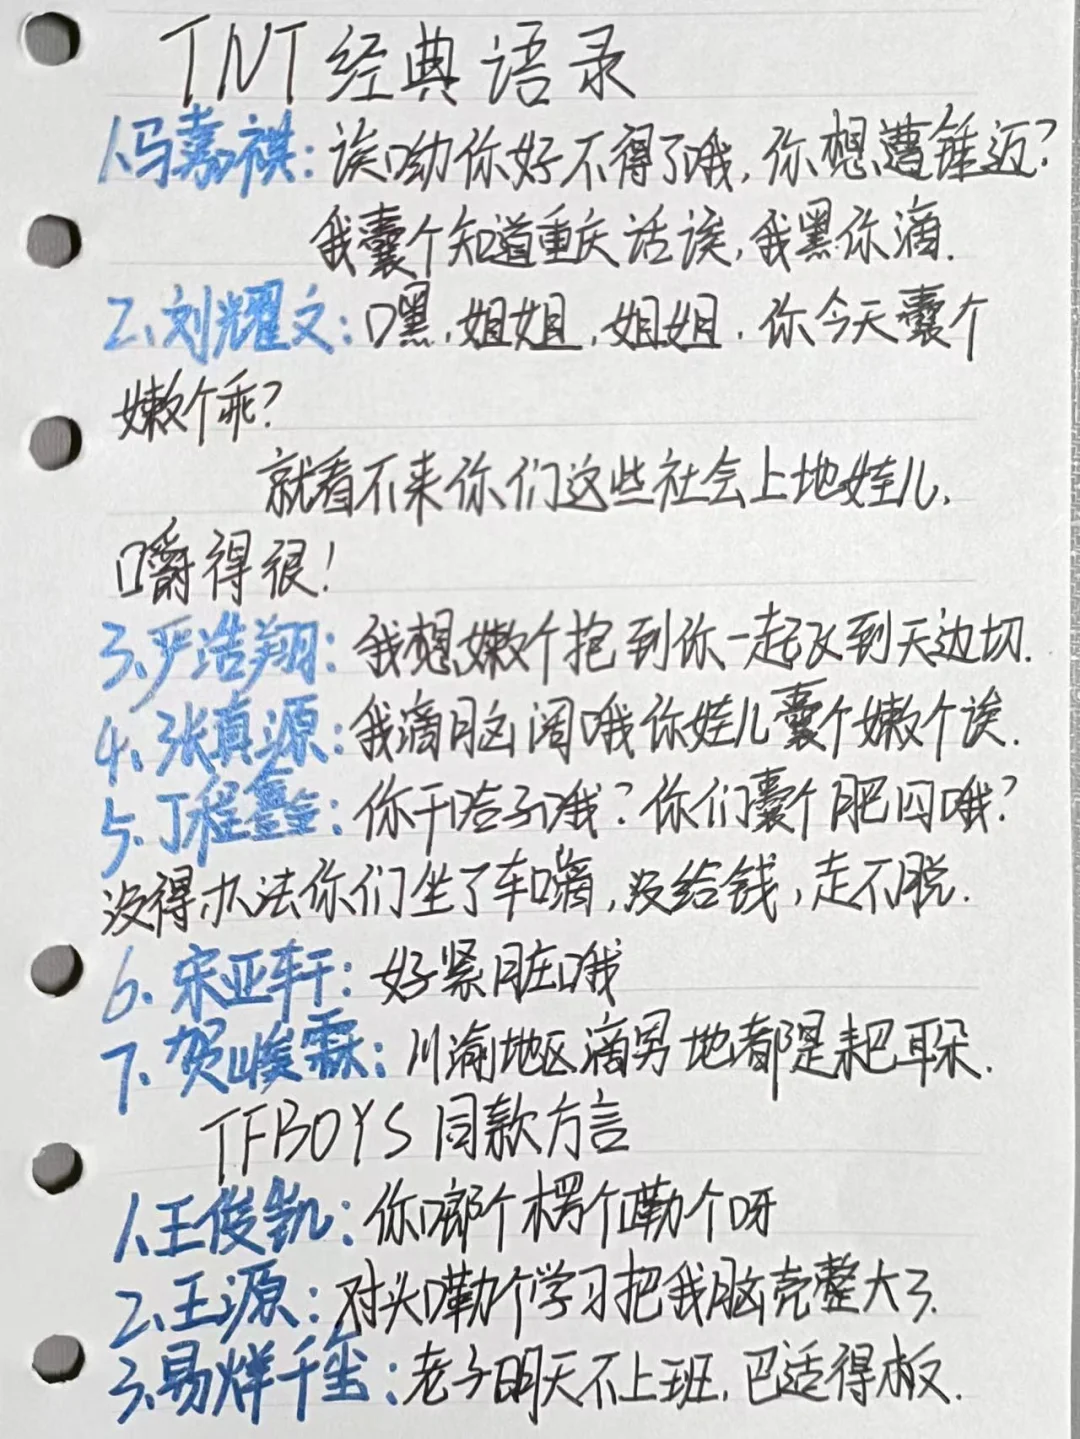 TNT经典语录
1.冯嘉祺：诶呦你好不得了哦，你想遭锤迈？
我囊个知道重庆话诶，我黑你滴.
2.刘耀文：嘿，姐姐，姐姐，你今天囊个
嫩个乖？
就看不来你们这些社会上地娃儿，
嚼得很！
3.严浩翔：我想嫩个抱到你一起飞到天边切.
4.张真源：我滴脑阔哦你娃儿囊个嫩个诶.
5.丁程鑫：你干啥子哦？你们囊个肥四哦？
没得办法你们坐了车嘀，没给钱，走不脱.
6.宋亚轩：好紧脏哦
7.贺峻霖：川渝地区滴男地都是耙耳朵.
TFBOYS同款方言
1.王俊凯：你啷个楞个嘞个呀
2.王源：对头嘞个学习把我脑壳整大了.
3.易烊千玺：老子明天不上班，巴适得板.